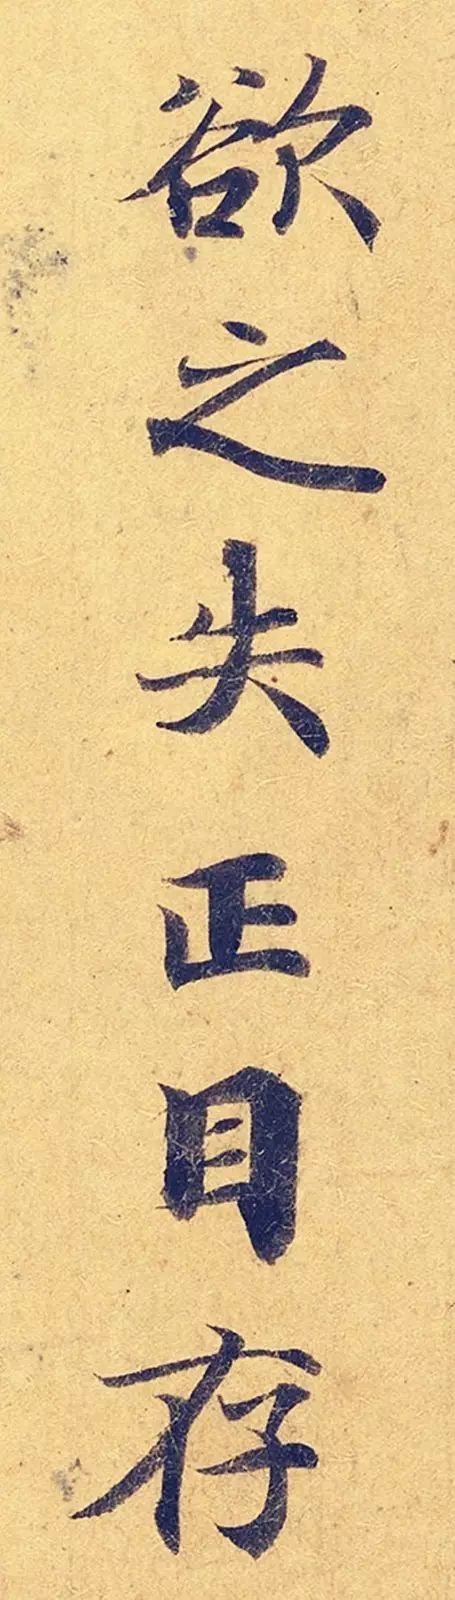 欲之失正目存